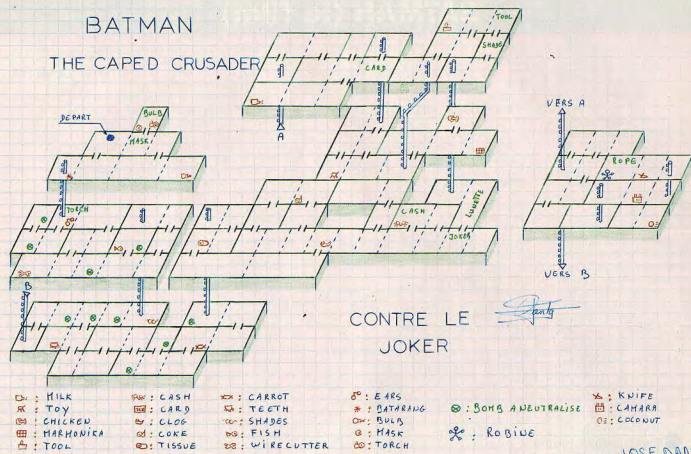 BATMAN
THE CAPED CRUSADER
TOOL
SHADE
CARD
A
DEPART
BULB
MASK
VERS A
ROPE
TORCH
CASH
LUNETTE
JOKER
VERS B
B
CONTRE LE
JOKER
: MILK
: TOY
: CHICKEN
: HARMONIKA
: TOOL
: CASH
: CARD
: CLOG
: COKE
: TISSUE
: CARROT
: TEETH
: SHADES
: FISH
: WIRECUTTER
: EARS
: BATARANG
: BULB
: MASK
: TORCH
: BOMB A NEUTRALISE
: ROBINE
: KNIFE
: CAMARA
: COCONUT
JOSE